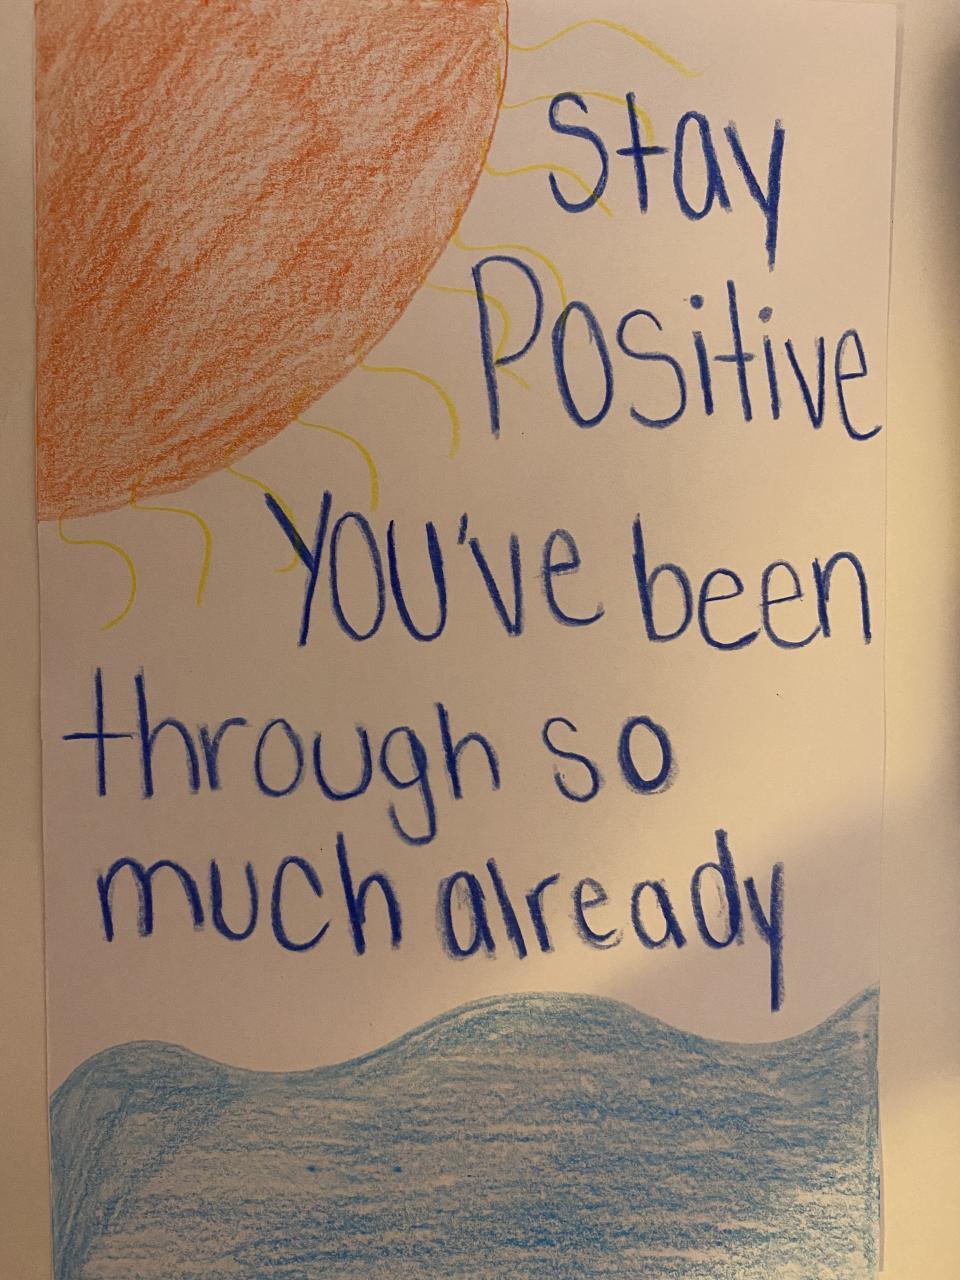 Stay
Positive
You've been
through so
much already